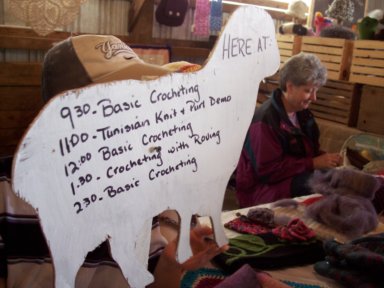 HERE AT:
9:30 - Basic Crocheting
11:00 - Tunisian Knit & Purl Demo
12:00 Basic Crocheting
1:30 - Crocheting with Roving
2:30 - Basic Crocheting